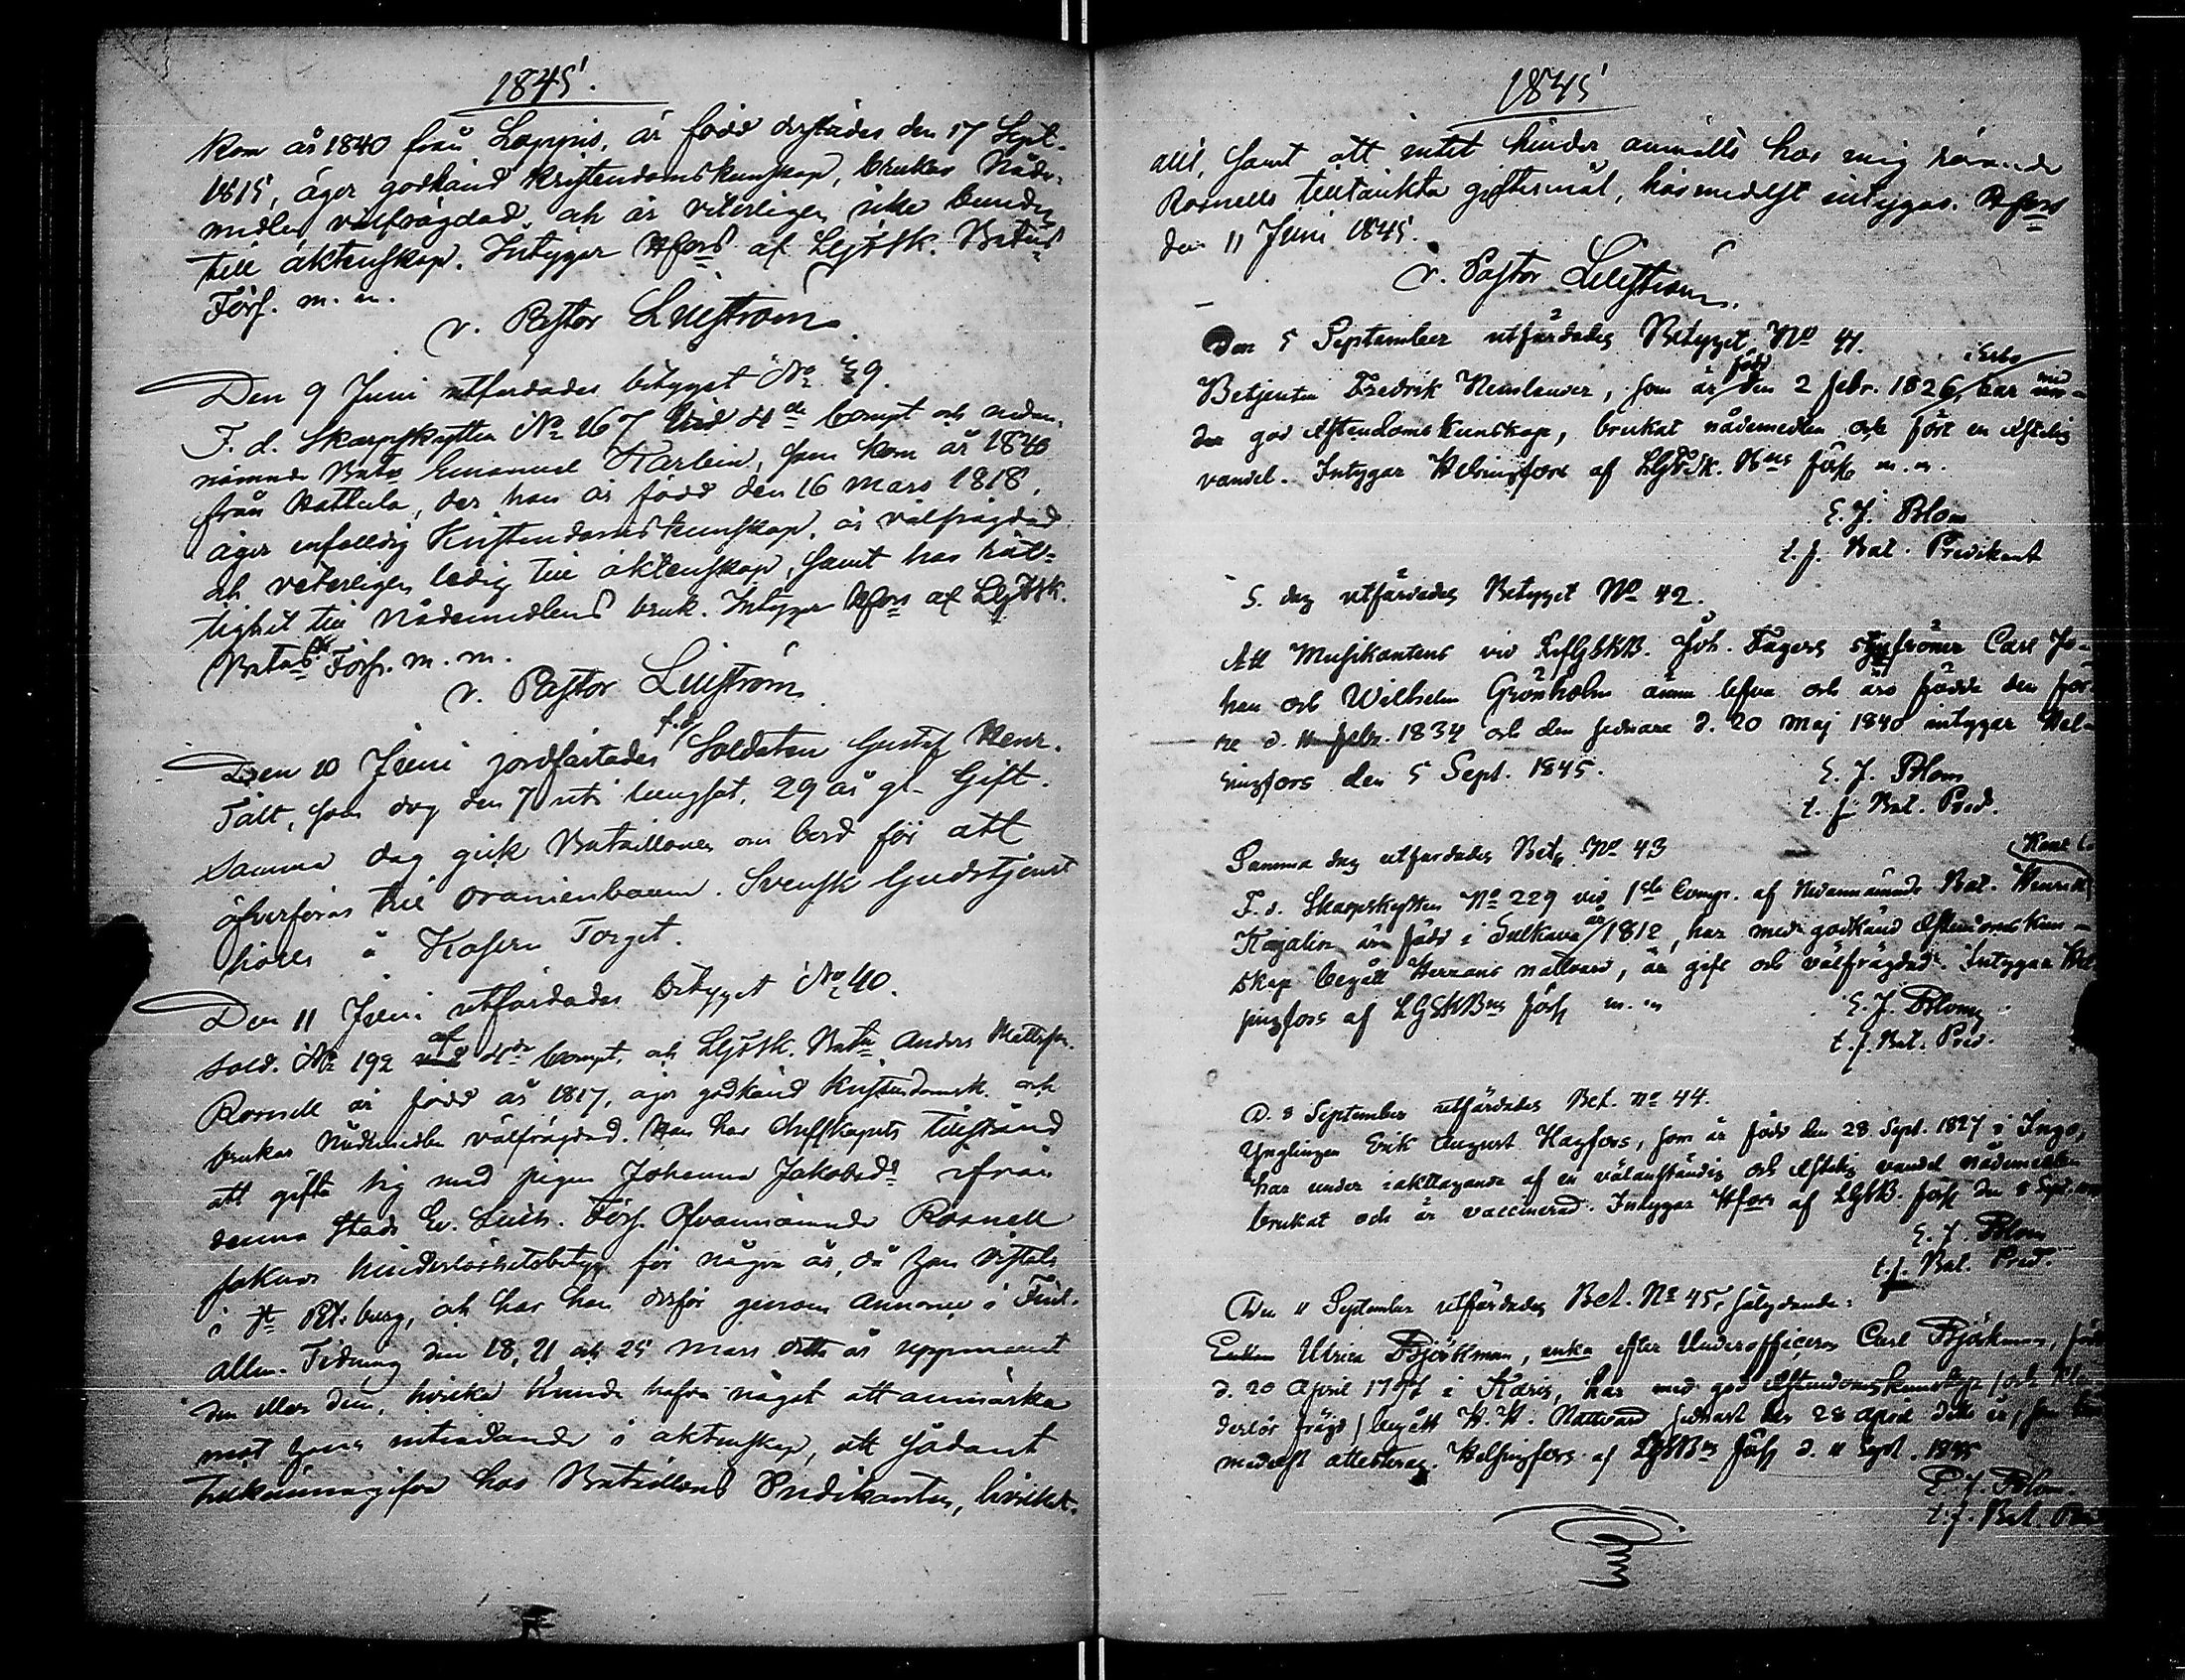 1845.
Kom år 1840 från Loppis, är född derstädes den 17 Sept.
1815, äger godkänd kristendomskunskap, brukar Nåde-
medlen välfrägdad och är veterligen icke bunden
till äktenskap. Intygar Hfors af LgFSk. Batns
Förs. m. m.
v. Pastor Liliström
Den 9 Juni utfärdades betyget No 39.
F. d. Skarpskytten No 267 vid 4de Compt och nedan-
nämnde Batn Emanuel Karlein, som kom år 1840
från Hattula, der han är född den 16 Mars 1818,
äger enfaldig Kristendomskunskap, är välfrägdad
och veterligen ledig till äktenskap, samt har rät-
tighet till Nådemedlens bruk. Intygar Hfors af LgFSk.
Batns Förs. m. m.
v. Pastor Liliström
Den 10 Juni jordfästades f.d. Soldaten Gustaf Henr.
Tält, som dog den 7 uti lungsot, 29 år gl. Gift.
Samma dag gick Bataillonen om bord för att
öfverföras till Oranienbaum. Svensk Gudstjenst
hölls å Kasern Torget.
Den 11 Juni utfärdades betyget No 40.
Sold. No 192 af 4de Compt. och LgFSk. Batn Anders Mattsson
Rosnell är född år 1817, äger godkänd Kristendomsk. och
brukar Nådemedlen välfrägdad. Han har Chefskapets tillstånd
att gifta sig med pigan Johanna Jakobsdr ifrån
denna Stads Ev. Luth. Förs. Ofvannämnde Rosnell
saknar hinderlöshetsbetyg för några år, då han vistats
i St Pet.burg, och har han derför genom annonce i Finl.
Allm. Tidning den 18, 21 och 25 Mars detta år uppmanat
den eller dem, hvilka kunde hafva något att anmärka
mot hans inträdande i äktenskap, att sådant
tillkännagifva hos Bataillons Predikanten, hvilket.
1845
allt, samt att intet hinder anmälts hos mig rörande
Rosnells tilltänkta giftermål, härmedelst intygas. Hfors
den 11 Juni 1845.
v. Pastor Liliström.
Den 5 September utfärdades Betyget No 41.
Betjenten Fredrik Nemlander, som är född den 2 febr. 1826 i Esbo, har med
god Chstendoms Kunskap, brukat nådemedlen och fört en Chstelig
vandel. Intygar Helsingfors af LGFSk. Bns förs m. m.
E. J. Blom
t. f. Bat. Predikant
S. dag utfärdades Betyget No 42.
Att Musikantens vid LifGSKB. Joh. Fagers styfsöner Carl Jo-
han och Wilhelm Grönholm ännu lefva och äro födde den för-
re d. 11 febr. 1834 och den sednare d. 20 Maj 1840 intygar Hel-
singfors den 5 Sept. 1845.
E. J. Blom
t. f. Bat. Pred.
Samma dag utfärdades Bet. No 43
F. d. Skarpskytten No 229 vid 1sta Comp. af Nedannämnde Bat. Henrik
Kajalin är född i Sulkava år 1812, har med godkänd Chstendomskun-
skap begått Herrans nattvard, är gift och välfrägdad. Intygar Hel-
singfors af LGSKBns förs m. m
E. J. Blom
t. f. Bat. Pred.
D. 8 September utfärdades Bet. No 44.
Ynglingen Erik August Hagfors, som är född den 28 Sept. 1827 i Ingo,
har under iakttagande af en välanständig och Chstelig vandel nådemedlen
brukat och är vaccinerad. Intygar Hfors af LGSB. förs den 8 Sept.
E. J. Blom
t. f. Bat. Pred.
Den 11 September utfärdades Bet. No 45, följande:
Ulrica Björkman, enka efter Underofficeren Carl Björkman, född
d. 20 April i Karis, har med god Chstendomskunskap
begått H. H. Nattvard sednast den 28 April detta år,
medelst attesteras. Helsingfors af LGSBns förs d. 11 Sept. 1845
E. J. Blom.
t. f. Bat. Pred